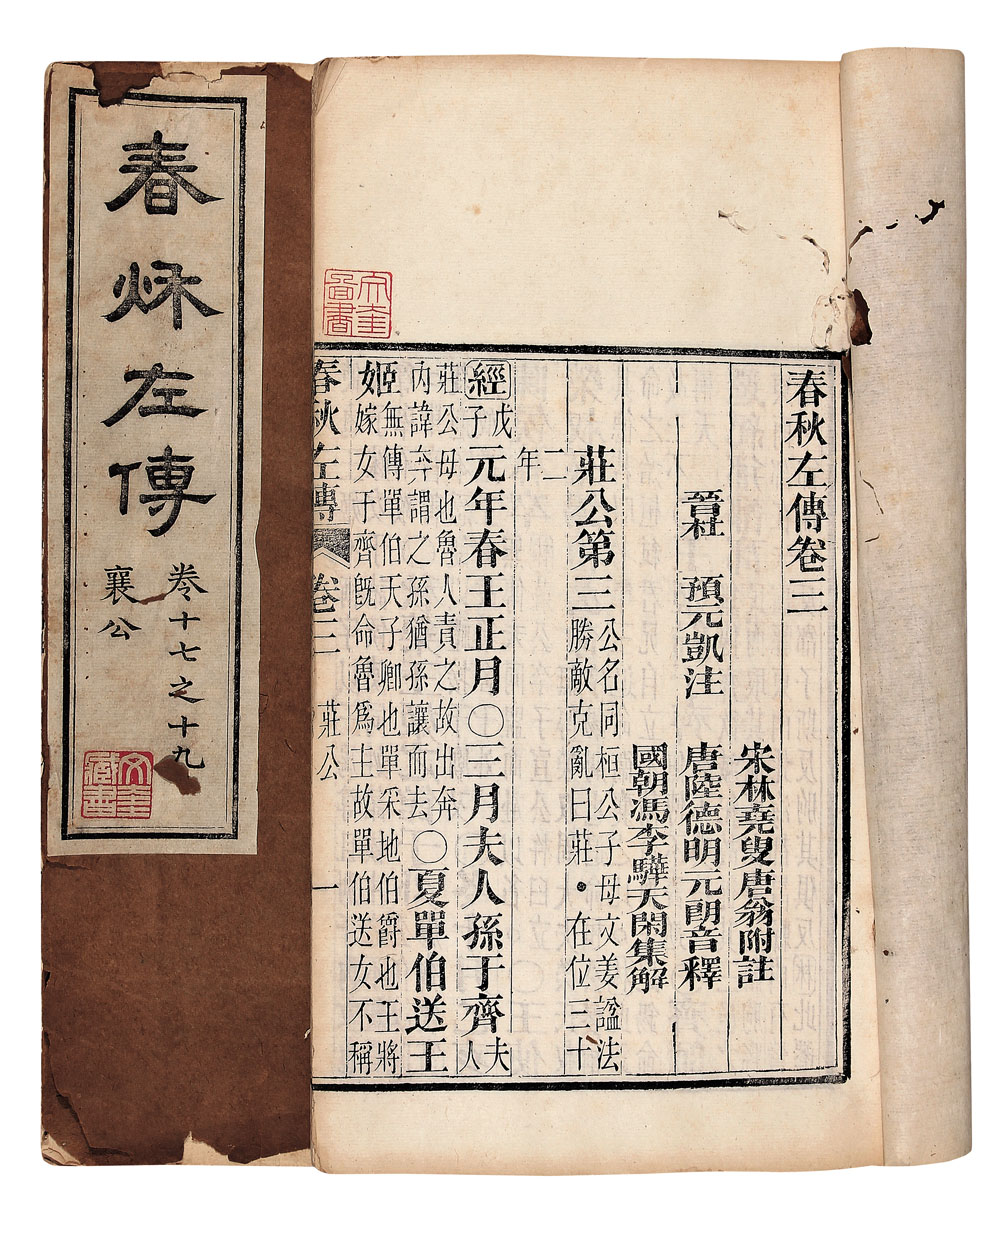 春秋左傳卷三
宋林堯叟唐翁附註
晉杜 預元凱注 唐陸德明元朗音釋
國朝馮李驊天閑集解
莊公第三
公名同桓公子母文姜諡法
勝敵克亂曰莊・在位三十
二
年
經
戊
子
元年春王正月〇三月夫人孫于齊
夫
人
莊公母也魯人責之故出奔
內諱奔謂之孫猶孫讓而去
〇夏單伯送王
姬
無傳單伯天子卿也單采地伯爵也王將
嫁女于齊既命魯爲主故單伯送女不稱
春秋左傳 卷三 莊公 一
文奎
圖書
春秌左傳
卷十七之十九
襄公
文奎
藏書